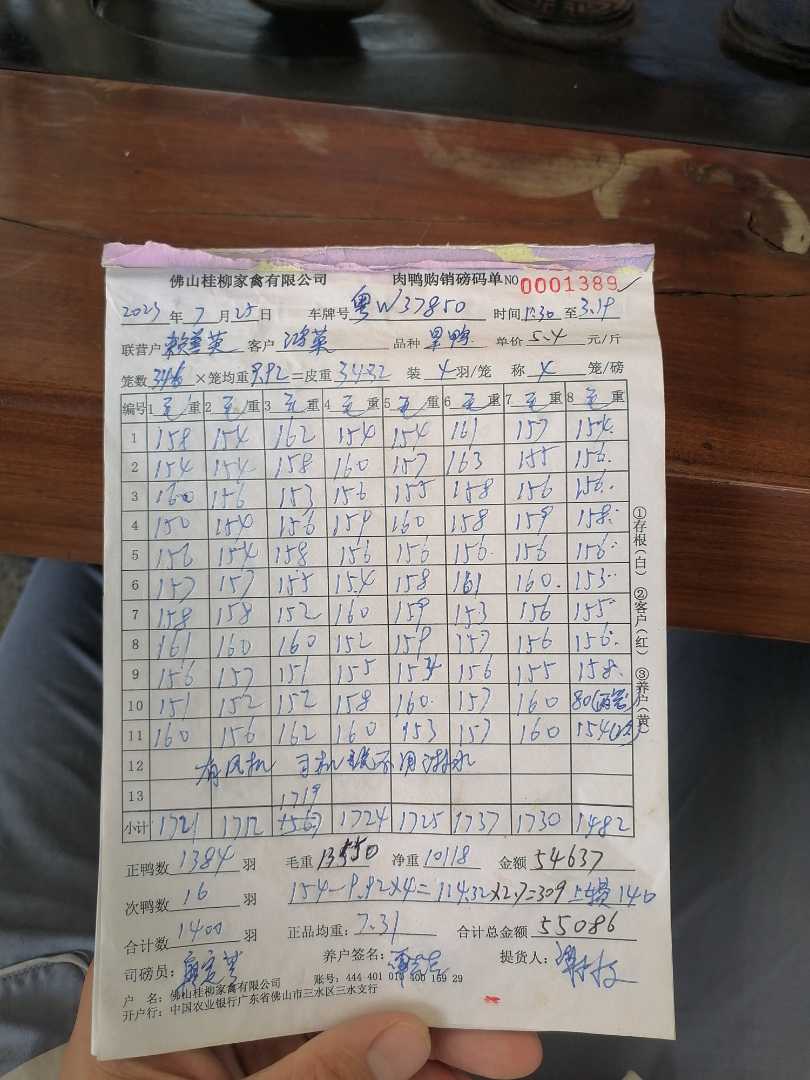 佛山桂柳家禽有限公司 肉鸭购销磅码单 NO 0001389
2023 年 7 月 25 日 车牌号 粤W37850 时间 1:30 至 3.19
联营户 客户 鸿英 品种 单价 5.4 元/斤
笼数 346 ×笼均重 9.92 =皮重 3432 装 4 羽/笼 称 4 笼/磅
编号 1 毛 重 2 毛 重 3 毛 重 4 毛 重 5 毛 重 6 毛 重 7 毛 重 8 毛 重
1 158 154 162 154 154 161 157 154
2 154 154 158 160 157 163 155 156
3 160 156 153 156 155 158 156 156
4 150 154 156 159 160 158 159 158
5 156 154 158 156 156 156 156 156
6 157 157 155 154 158 161 160 153
7 158 158 152 160 159 153 156 155
8 161 160 160 152 159 157 156 156
9 156 157 151 155 154 156 155 158
10 151 152 152 158 160 157 160 80(两笼)
11 160 156 162 160 153 157 160 154
12 有风机 司机 不用
13 1719
小计 1721 1712 1724 1725 1737 1730 1482
正鸭数 1384 羽 毛重 13550 净重 10118 金额 54637
次鸭数 16 羽 154-9.92×4=114.32×2.7=309 140
合计数 1400 羽 正品均重: 7.31 合计总金额 55086
司磅员: 养户签名: 提货人:
户 名: 佛山桂柳家禽有限公司 账号: 444 401 010 400 169 29
开户行: 中国农业银行广东省佛山市三水区三水支行
①存根(白) ②客户(红) ③养户(黄)